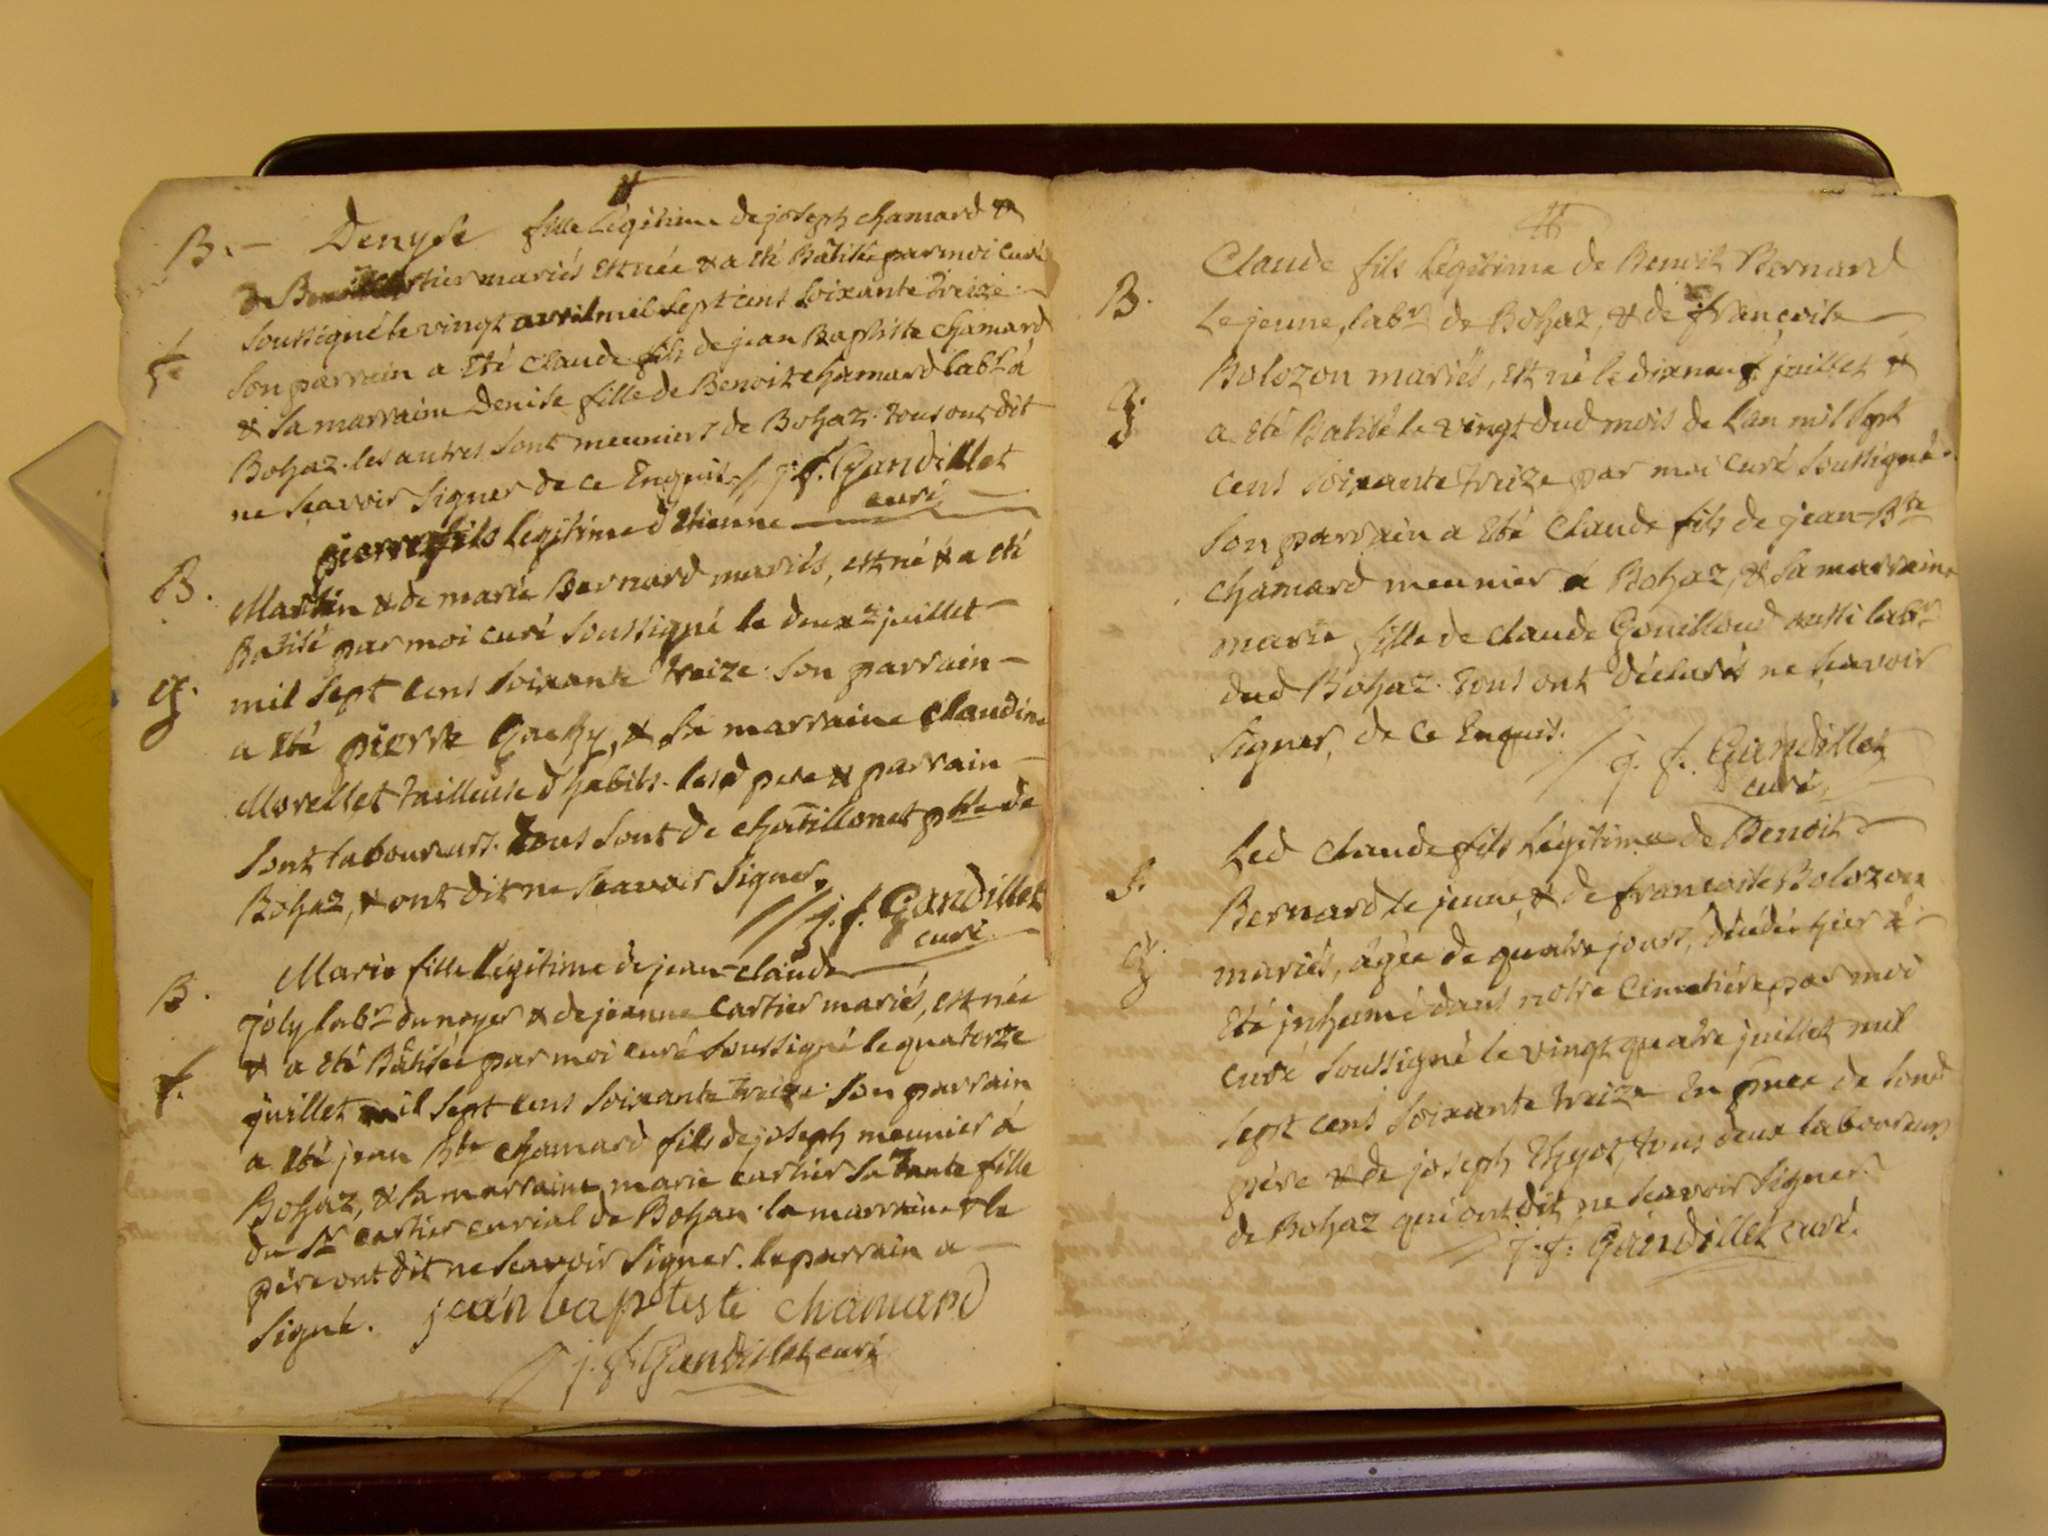 B. Denyse fille légitime de joseph chamard &
de Cartier mariés est née & a été Bâtisée par moi curé
soussigné le vingt avril mil sept cens soixante treize
fe son parrain a été Claude fils de jean Baptiste Chamard
& sa marraine Denise fille de Benoit Chamard labr à
Bohaz. les autres sont meuniers de Bohaz. tous ont dit
ne sçavoir signer de ce Enquis. j. f. Gandillet
curé
pierre fils légitime d'Etienne
B. Martin & de marie Bernard mariés, est né & a été
Batisé par moi curé soussigné le deux juillet
g. mil sept cens soixante treize. son parrain
a été pierre & sa marraine claudine
Morellet tailleuse d'habits. lesd pere & parrain
sont laboureurs. tous sont de chatillonet psse de
Bohaz, & ont dit ne sçavoir signer.
j. f. Gandillet
curé
Marie fille légitime de jean-claude
B. joly labr du noyer & de jeanne Cartier mariés, est née
& a été Bâtisée par moi curé soussigné le quatorze
f. juillet mil sept cens soixante treize. son parrain
a été jean Bte chamard fils de joseph meunier à
Bohaz, & sa marraine marie cartier sa tante fille
du Sr cartier curial de Bohan. la marraine & le
père ont dit ne sçavoir signer. le parrain a
signé. jean bapteste chamard
j. f. Gandillet curé
Claude fils légitime de Benoit Bernard
B. Lejeune, labr de Bohaz, & de francoise
Bolozon mariés, est né le dixneuf juillet &
g. a été Batisé le vingt dud mois de l'an mil sept
cens soixante treize par moi curé soussigné.
son parrain a été Claude fils de jean-Bte
chamard meunier à Bohaz, & sa marraine
marie fille de claude Gouilloud aussi labr
dud Bohaz. tous ont déclarés ne sçavoir
signer, de ce Enquis.
j. f. Gandillet
curé
Led Claude fils légitime de Benoit
S. Bernard le jeune, & de francoise Bolozon
g. mariés, âgée de quatre jours, décédé hier à
été jnhumé dans notre Cimetière par moi
curé soussigné le vingt quatre juillet mil
sept cens soixante treize En pnce de sond
père & de joseph tous deux laboureurs
de Bohaz qui ont dit ne sçavoir signer.
j. f. Gandillet curé.